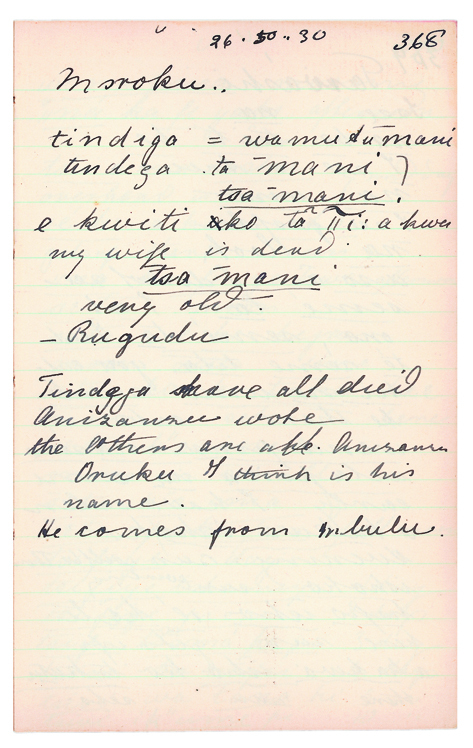 26 . 10 .. 30 368
Msroku ..
tindiga = wamutumani
tindega . ta mani )
tsa mani .
e kwiti ako ta : a kwa
my wife is dead
tsa mani
very old .
- Rugudu
Tindega have all died
Anizanzu wote
the others are all. Anizanzu
Oruku I think is his
name .
He comes from Mbulu .